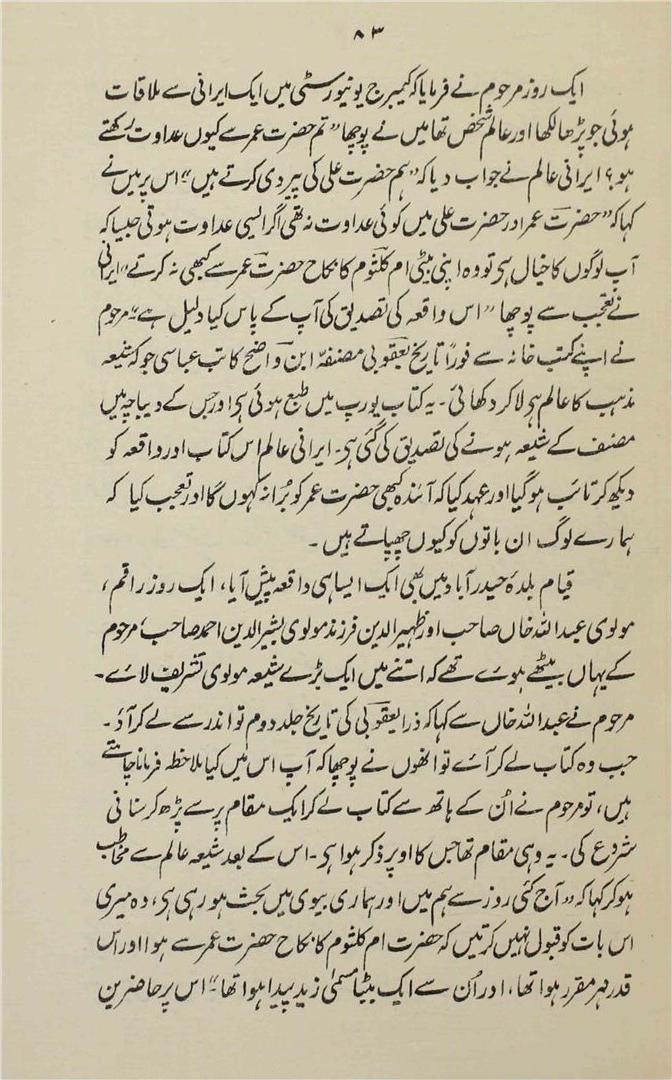 ۸۳
ایک روز مرحوم نے فرمایا کہ کیمبرج یونیورسٹی میں ایک ایرانی سے ملاقات
ہوئی جو پڑھا لکھا اور عالم شخص تھا میں نے پوچھا ”تم حضرت عمر سے کیوں عداوت رکھتے
ہو؟ ایرانی عالم نے جواب دیا کہ ”ہم حضرت علی کی پیروی کرتے ہیں“ اس پر میں نے
کہا کہ ”حضرت عمر اور حضرت علی میں کوئی عداوت نہ تھی اگر ایسی عداوت ہوتی جیسا کہ
آپ لوگوں کا خیال ہی تو وہ اپنی بیٹی ام کلثوم کا نکاح حضرت عمر سے کبھی نہ کرتے“ ایرانی
نے تعجب سے پوچھا ”اس واقعہ کی تصدیق کی آپ کے پاس کیا دلیل ہے“ مرحوم
نے اپنے کتب خانہ سے فوراً تاریخ یعقوبی مصنفۂ ابن واضح کاتب عباسی جو کہ شیعہ
مذہب کا عالم ہی لا کر دکھائی۔ یہ کتاب یورپ میں طبع ہوئی ہی اور جس کے دیباچہ میں
مصنف کے شیعہ ہونے کی تصدیق کی گئی ہی۔ ایرانی عالم اس کتاب اور واقعہ کو
دیکھ کر تائب ہوگیا اور عہد کیا کہ آئندہ کبھی حضرت عمر کو بُرا نہ کہوں گا اور تعجب کیا کہ
ہمارے لوگ ان باتوں کو کیوں چھپاتے ہیں۔
قیام بلدۂ حیدرآباد میں بھی ایک ایسا ہی واقعہ پیش آیا، ایک روز راقم،
مولوی عبداللہ خاں صاحب اور ظہیرالدین فرزند مولوی بشیرالدین احمد صاحب، مرحوم
کے یہاں بیٹھے ہوئے تھے کہ اتنے میں ایک بڑے شیعہ مولوی تشریف لائے۔
مرحوم نے عبداللہ خاں سے کہا کہ ذرا یعقوبی کی تاریخ جلد دوم تو اندر سے لے کر آؤ۔
جب وہ کتاب لے کر آئے تو انھوں نے پوچھا کہ آپ اس میں کیا ملاحظہ فرمانا چاہتے
ہیں، تو مرحوم نے اُن کے ہاتھ سے کتاب لے کر ایک مقام پر سے پڑھ کر سنانی
شروع کی۔ یہ وہی مقام تھا جس کا اوپر ذکر ہوا ہی۔ اس کے بعد شیعہ عالم سے مخاطب
ہوکر کہا کہ ”آج کئی روز سے ہم میں اور ہماری بیوی میں بحث ہو رہی ہی، وہ میری
اس بات کو قبول نہیں کرتیں کہ حضرت ام کلثوم کا نکاح حضرت عمر سے ہوا اور اس
قدر مہر مقرر ہوا تھا، اور اُن سے ایک بیٹا مسمیٰ زید پیدا ہوا تھا“ اس پر حاضرین